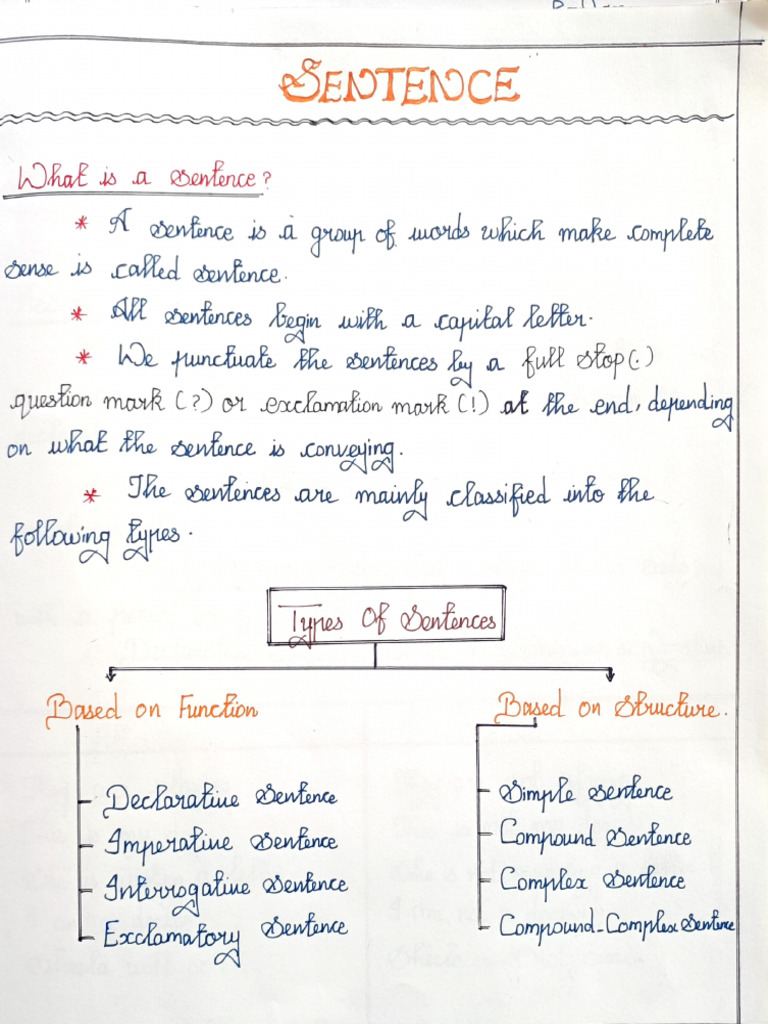 SENTENCE
What is a sentence?
* A sentence is a group of words which make complete
sense is called sentence.
* All sentences begin with a capital letter.
* We punctuate the sentences by a full stop(.)
question mark (?) or exclamation mark (!) at the end, depending
on what the sentence is conveying.
* The sentences are mainly classified into the
following types.
Types Of Sentences
Based on Function
Based on Structure.
Declarative Sentence
Simple sentence
Imperative Sentence
Compound Sentence
Interrogative Sentence
Complex Sentence
Exclamatory Sentence
Compound-Complex Sentence